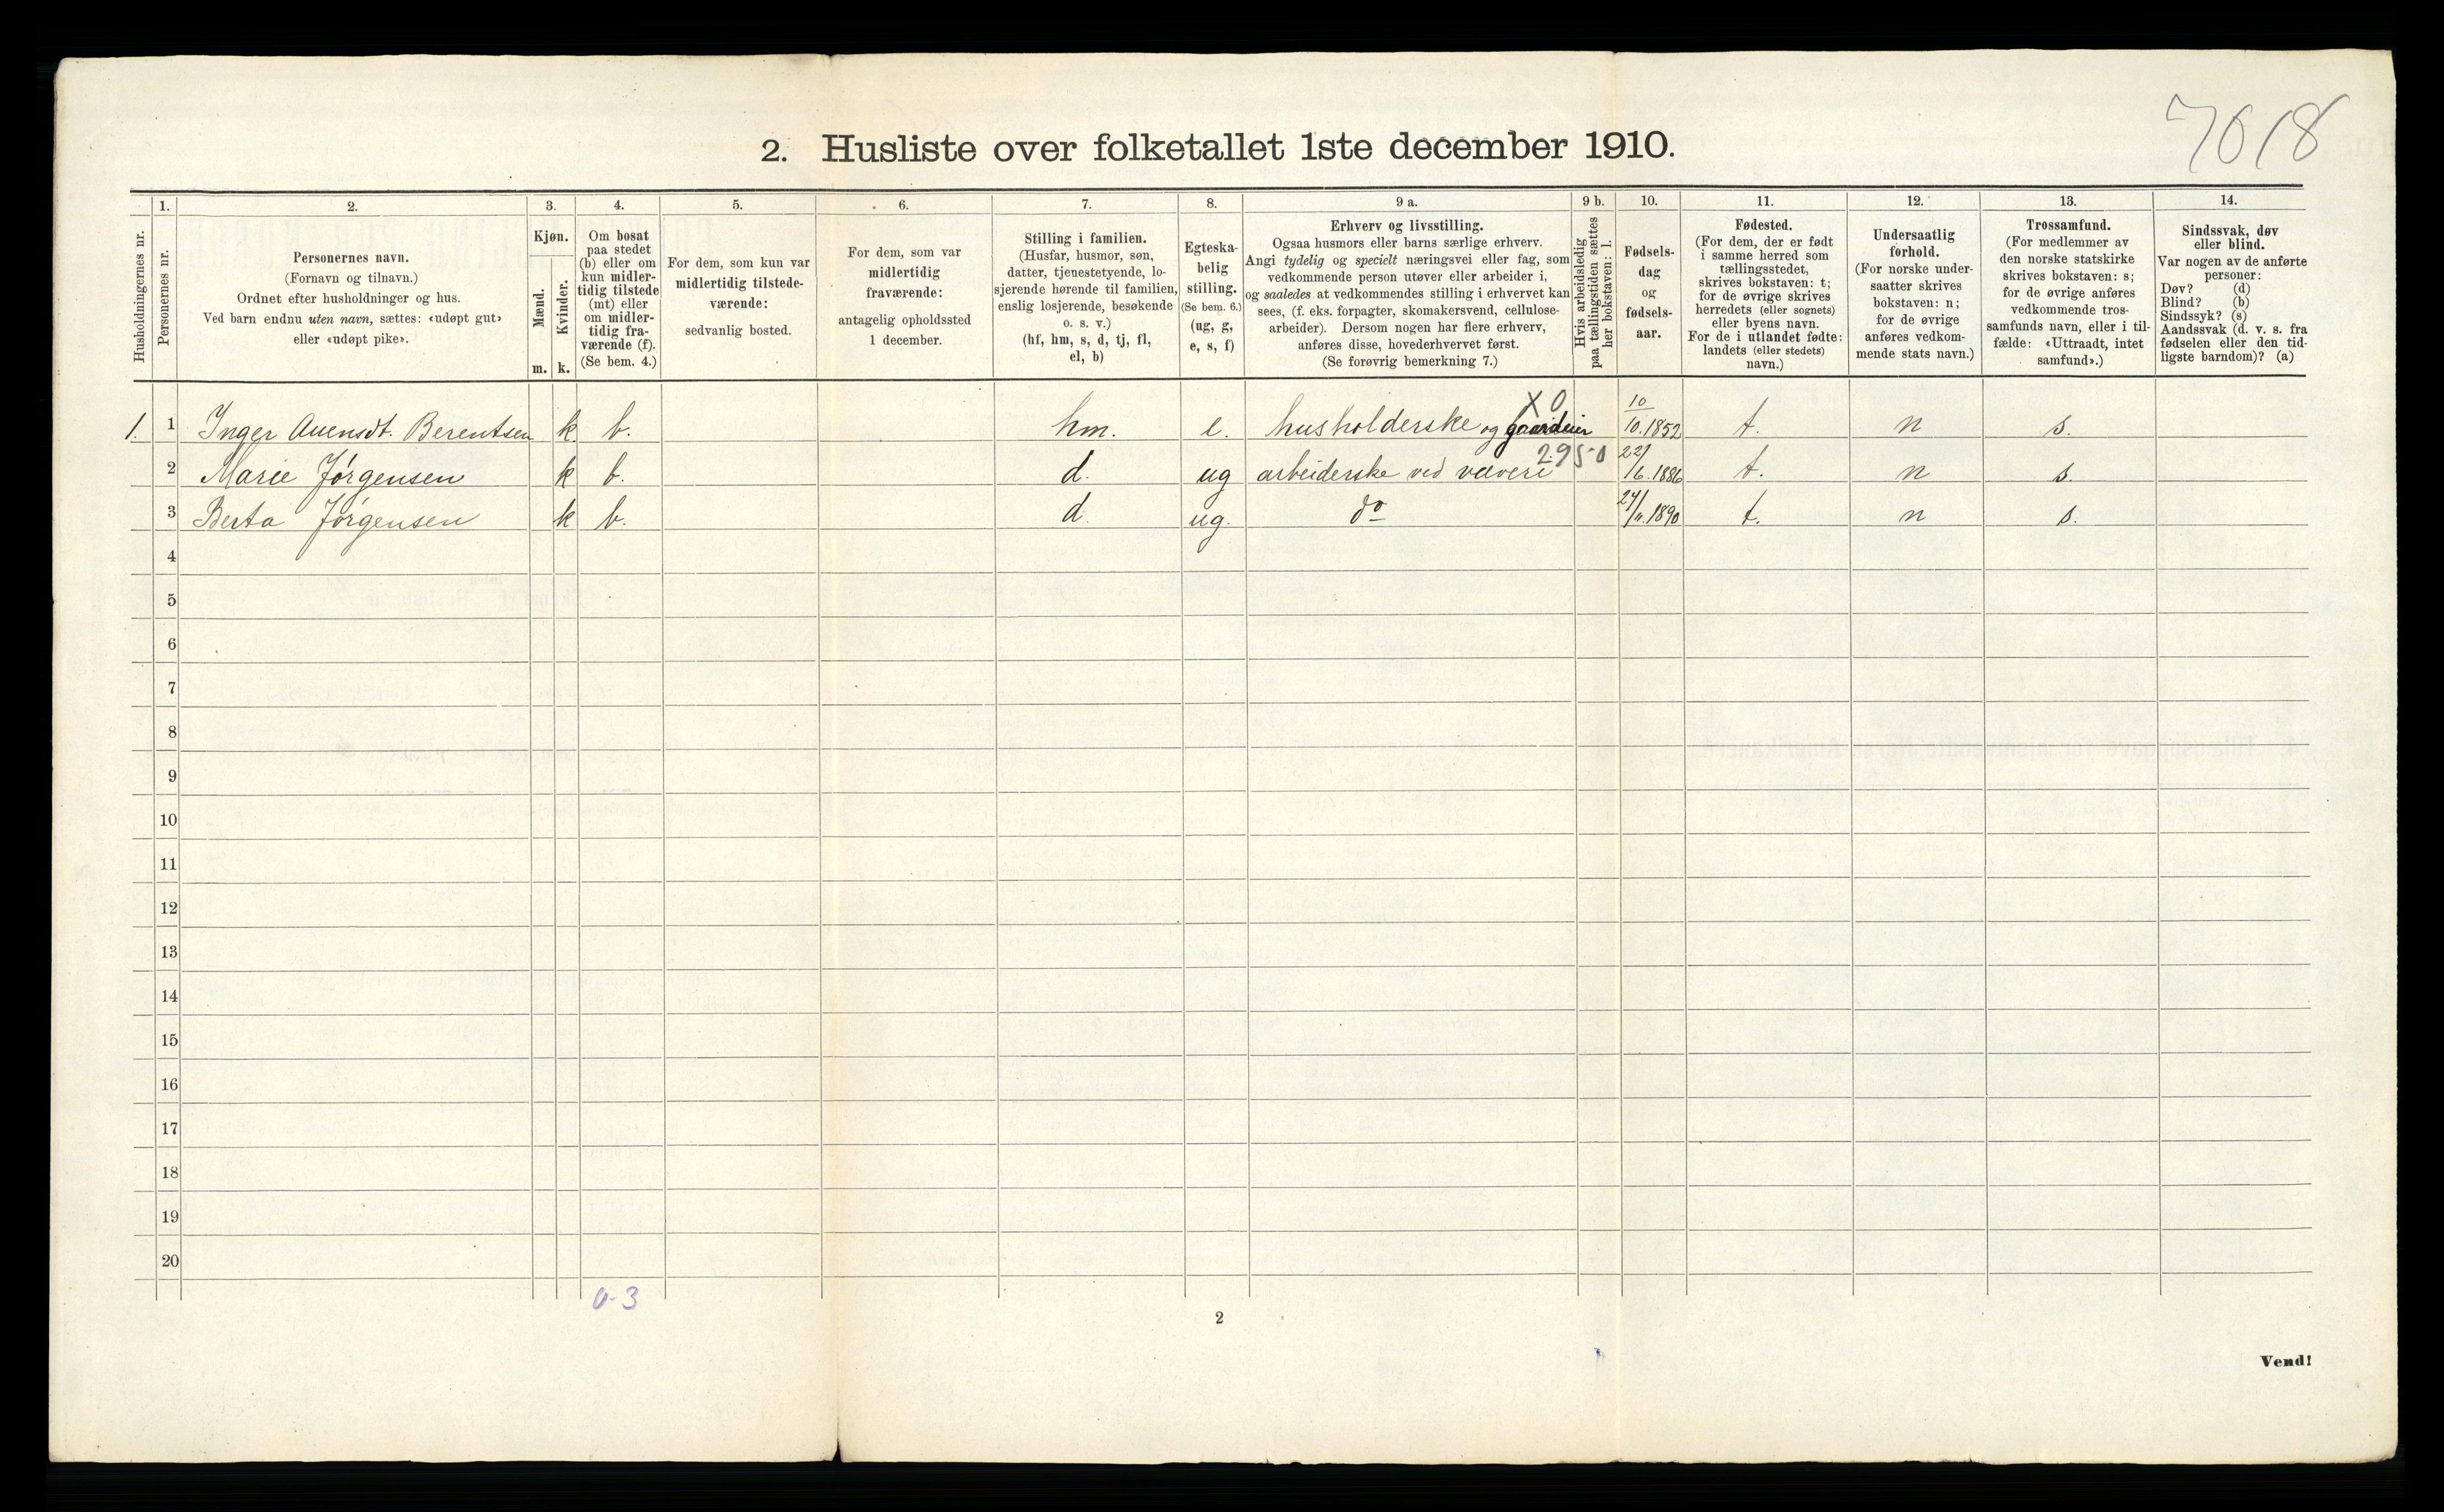 7018
2. Husliste over folketallet 1ste december 1910.
Husholdningernes nr.
1.
Personernes nr.
2.
Personernes navn.
(Fornavn og tilnavn.)
Ordnet efter husholdninger og hus.
Ved barn endnu uten navn, sættes: «udøpt gut»
eller «udøpt pike».
3.
Kjøn.
Mænd.
Kvinder.
m. k.
4.
Om bosat
paa stedet
(b) eller om
kun midler-
tidig tilstede
(mt) eller
om midler-
tidig fra-
værende (f).
(Se bem. 4.)
5.
For dem, som kun var
midlertidig tilstede-
værende:
sedvanlig bosted.
6.
For dem, som var
midlertidig
fraværende:
antagelig opholdssted
1 december.
7.
Stilling i familien.
(Husfar, husmor, søn,
datter, tjenestetyende, lo-
sjerende hørende til familien,
enslig losjerende, besøkende
o. s. v.)
(hf, hm, s, d, tj, fl,
el, b)
8.
Egteska-
belig
stilling.
(Se bem. 6.)
(ug, g,
e, s, f)
9 a.
Erhverv og livsstilling.
Ogsaa husmors eller barns særlige erhverv.
Angi tydelig og specielt næringsvei eller fag, som
vedkommende person utøver eller arbeider i,
og saaledes at vedkommendes stilling i erhvervet kan
sees, (f. eks. forpagter, skomakersvend, cellulose-
arbeider). Dersom nogen har flere erhverv,
anføres disse, hovederhvervet først.
(Se forøvrig bemerkning 7.)
9 b.
Hvis arbeidsledig
paa tællingstiden sættes
her bokstaven: l.
10.
Fødsels-
dag
og
fødsels-
aar.
11.
Fødested.
(For dem, der er født
i samme herred som
tællingsstedet,
skrives bokstaven: t;
for de øvrige skrives
herredets (eller sognets)
eller byens navn.
For de i utlandet fødte:
landets (eller stedets)
navn.)
12.
Undersaatlig
forhold.
(For norske under-
saatter skrives
bokstaven: n;
for de øvrige
anføres vedkom-
mende stats navn.)
13.
Trossamfund.
(For medlemmer av
den norske statskirke
skrives bokstaven: s;
for de øvrige anføres
vedkommende tros-
samfunds navn, eller i til-
fælde: «Uttraadt, intet
samfund».)
14.
Sindssvak, døv
eller blind.
Var nogen av de anførte
personer:
Døv? (d)
Blind? (b)
Sindssyk? (s)
Aandssvak (d. v. s. fra
fødselen eller den tid-
ligste barndom)? (a)
X 0
1. 1 Inger Auensdt. Berentsen k b. hm. e. husholderske og gaardeier 10/10.1852 t. n s.
2950
2 Marie Jørgensen k b. d. ug arbeiderske ved væveri 22/6.1886 t. n s.
3 Berta Jørgensen k b. d. ug. do 24/11.1890 t. n s.
4
5
6
7
8
9
10
11
12
13
14
15
16
17
18
19
20
0-3
2
Vend!